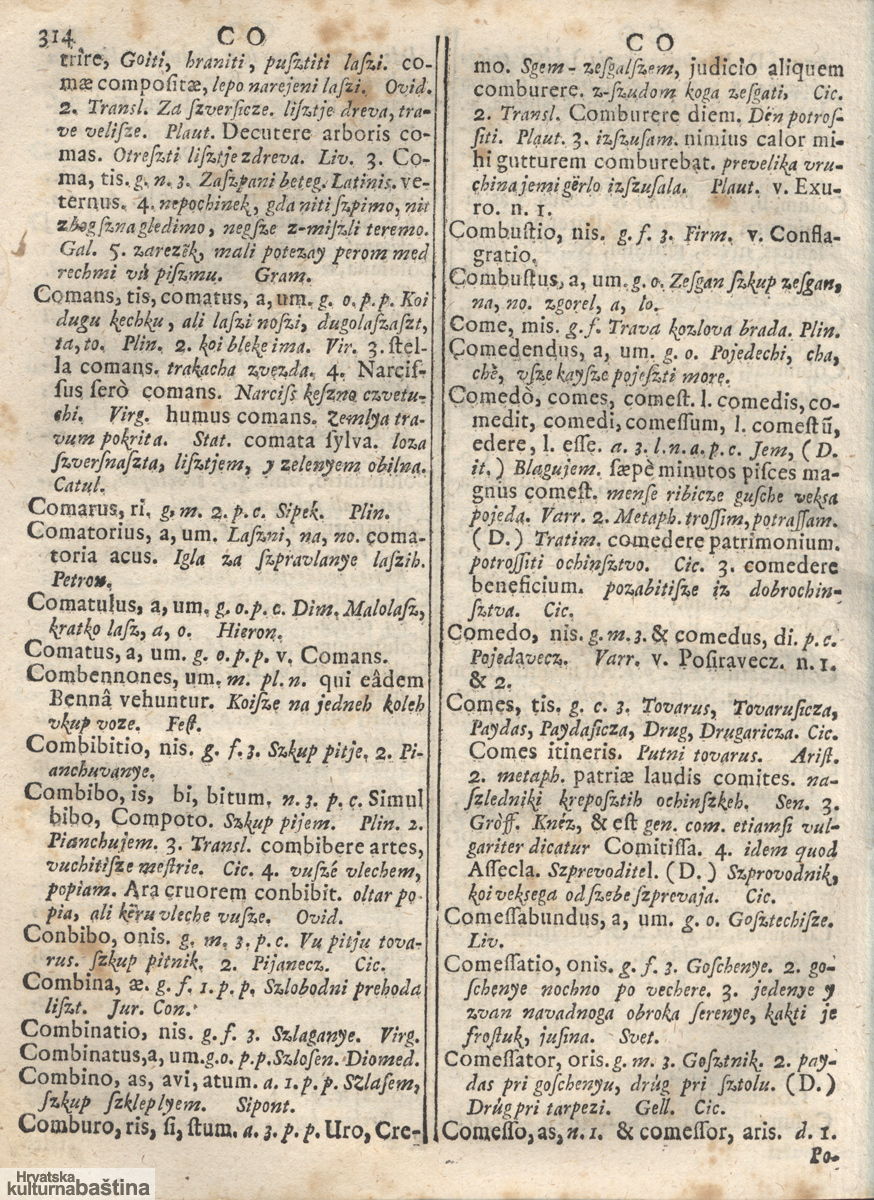 314 CO
trire, Goiti, hraniti, pusztiti laszi. co-
mæ compositæ, lepo narejeni laszi. Ovid.
2. Transl. Za szversicze. lisztje dreva, tra-
ve velisze. Plaut. Decutere arboris co-
mas. Otreszti lisztje z dreva. Liv. 3. Co-
ma, tis. g. n. 3. Zaszpani beteg. Latinis. ve-
ternus. 4. nepochinek, gda niti szpimo, nit
zbog szna gledimo, negsze z-miszli teremo.
Gal. 5. zarezëk, mali potezay perom med
rechmi vù piszmu. Gram.
Comans, tis, comatus, a, um. g. o. p. p. Koi
dugu kechku, ali laszi noszi, dugolaszaszt,
ta, to. Plin. 2. koi bleke ima. Vir. 3. stel-
la comans. trakacha zvezda. 4. Narcis-
sus serò comans. Narciss keszno czvetu-
chi. Virg. humus comans. Zemlya tra-
vum pokrita. Stat. comata sylva. loza
szversnaszta, lisztjem, y zelenyem obilna.
Catul.
Comarus, ri. g. m. 2. p. c. Sipek. Plin.
Comatorius, a, um. Laszni, na, no. coma-
toria acus. Igla za szpravlanye laszih.
Petron.
Comatulus, a, um. g. o. p. c. Dim. Malolasz,
kratko lasz, a, o. Hieron.
Comatus, a, um. g. o. p. p. v. Comans.
Combennones, um. m. pl. n. qui eâdem
Bennâ vehuntur. Koisze na jedneh koleh
vkup voze. Fest.
Combibitio, nis. g. f. 3. Szkup pitje. 2. Pi-
anchuvanye.
Combibo, is, bi, bitum. n. 3. p. c. Simul
bibo, Compoto. Szkup pijem. Plin. 2.
Pianchujem. 3. Transl. combibere artes,
vuchitisze mestrie. Cic. 4. vuszé vlechem,
popiam. Ara cruorem conbibit. oltar po-
pia, ali kërv vleche vusze. Ovid.
Conbibo, onis. g. m. 3. p. c. Vu pitju tova-
rus. szkup pitnik. 2. Pijanecz. Cic.
Combina, æ. g. f. 1. p. p. Szlobodni prehoda
liszt. Jur. Con.
Combinatio, nis. g. f. 3. Szlaganye. Virg.
Combinatus, a, um. g. o. p. p. Szlosen. Diomed.
Combino, as, avi, atum. a. 1. p. p. Szlasem,
szkup szkleplyem. Sipont.
Comburo, ris, si, stum. a. 3. p. p. Uro, Cre-
CO
mo. Sgem-zesgalszem, judicio aliquem
comburere. z-szudom koga zesgati, Cic.
2. Transl. Comburere diem. Dén potros-
siti. Plaut. 3. izszusam. nimius calor mi-
hi gutturem comburebat. prevelika vru-
china jemi gërlo izszusala. Plaut. v. Exu-
ro. n. 1.
Combustio, nis. g. f. 3. Firm. v. Confla-
gratio.
Combustus, a, um. g. o. Zesgan szkup zesgan,
na, no. zgorel, a, lo.
Come, mis. g. f. Trava kozlova brada. Plin.
Comedendus, a, um. g. o. Pojedechi, cha,
chë, vsze kaysze pojeszti more.
Comedò, comes, comest. l. comedis, co-
medit, comedi, comessum, l. comestũ,
edere, l. esse. a. 3. l. n. a. p. c. Jem, (D.
it.) Blagujem. sæpè minutos pisces ma-
gnus comest. mense ribicze gusche veksa
pojeda. Varr. 2. Metaph. trossim, potrassam.
(D.) Tratim. comedere patrimonium.
potrossiti ochinsztvo. Cic. 3. comedere
beneficium. pozabitisze iz dobrochin-
sztva. Cic.
Comedo, nis. g. m. 3. & comedus, di. p. c.
Pojedavecz. Varr. v. Positavecz. n. 1.
& 2.
Comes, tis. g. c. 3. Tovarus, Tovarusicza,
Paydas, Paydasicza, Drug, Drugaricza. Cic.
Comes itineris. Putni tovarus. Arist.
2. metaph. patriæ laudis comites. na-
szledniki krepoztih ochinszkeh. Sen. 3.
Gròff. Knéz, & est gen. com. etiamsi vul-
gariter dicatur Comitissa. 4. idem quod
Assecla. Szprevoditel. (D.) Szprovodnik,
koi veksega od szebe szprevaja. Cic.
Comessabundus, a, um. g. o. Gosztechisze.
Liv.
Comessatio, onis. g. f. 3. Goschenye. 2. go-
schenye nochno po vechere. 3. jedenye y
zvan navadnoga obroka serenye, kakti je
frostuk, jusina. Svet.
Comessator, oris. g. m. 3. Gosztnik. 2. pay-
das pri goschenyu, drùg pri sztolu. (D.)
Drùg pri tarpezi. Gell. Cic.
Comesso, as, n. 1. & comessor, aris. d. 1.
Po-
Hrvatska
kulturnabaština